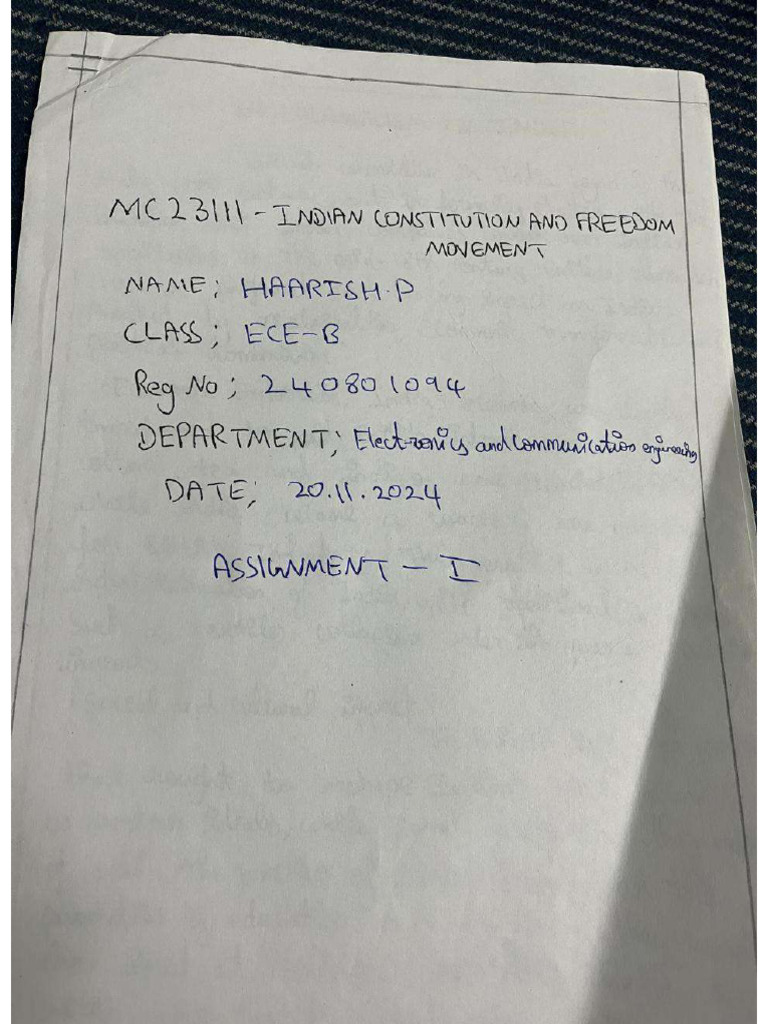 MC23111 - INDIAN CONSTITUTION AND FREEDOM
MOVEMENT
NAME; HAARISH.P
CLASS; ECE-B
Reg No; 240801094
DEPARTMENT; Electronics and communication engineering
DATE; 20.11.2024
ASSIGNMENT - I